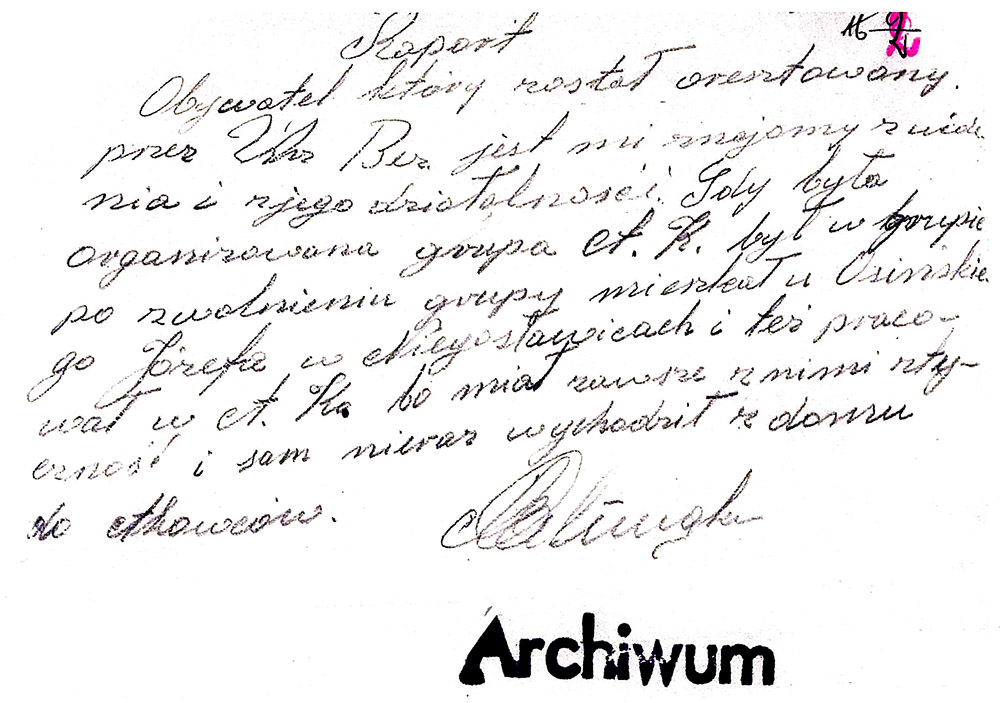 Raport
16
Obywatel który został aresztowany
przez Urz Bez. jest mi znajomy z widze
nia i z jego działalności. Gdy była
organizowana grupa A. K. był w grupie
po zwolnieniu grupy mieszkał u Osińskie
go Józefa w Niegosławicach i też praco-
wał w A. K. bo miał zawsze z nimi sty-
czność i sam nieraz wychodził z domu
do Akowców.
Archiwum